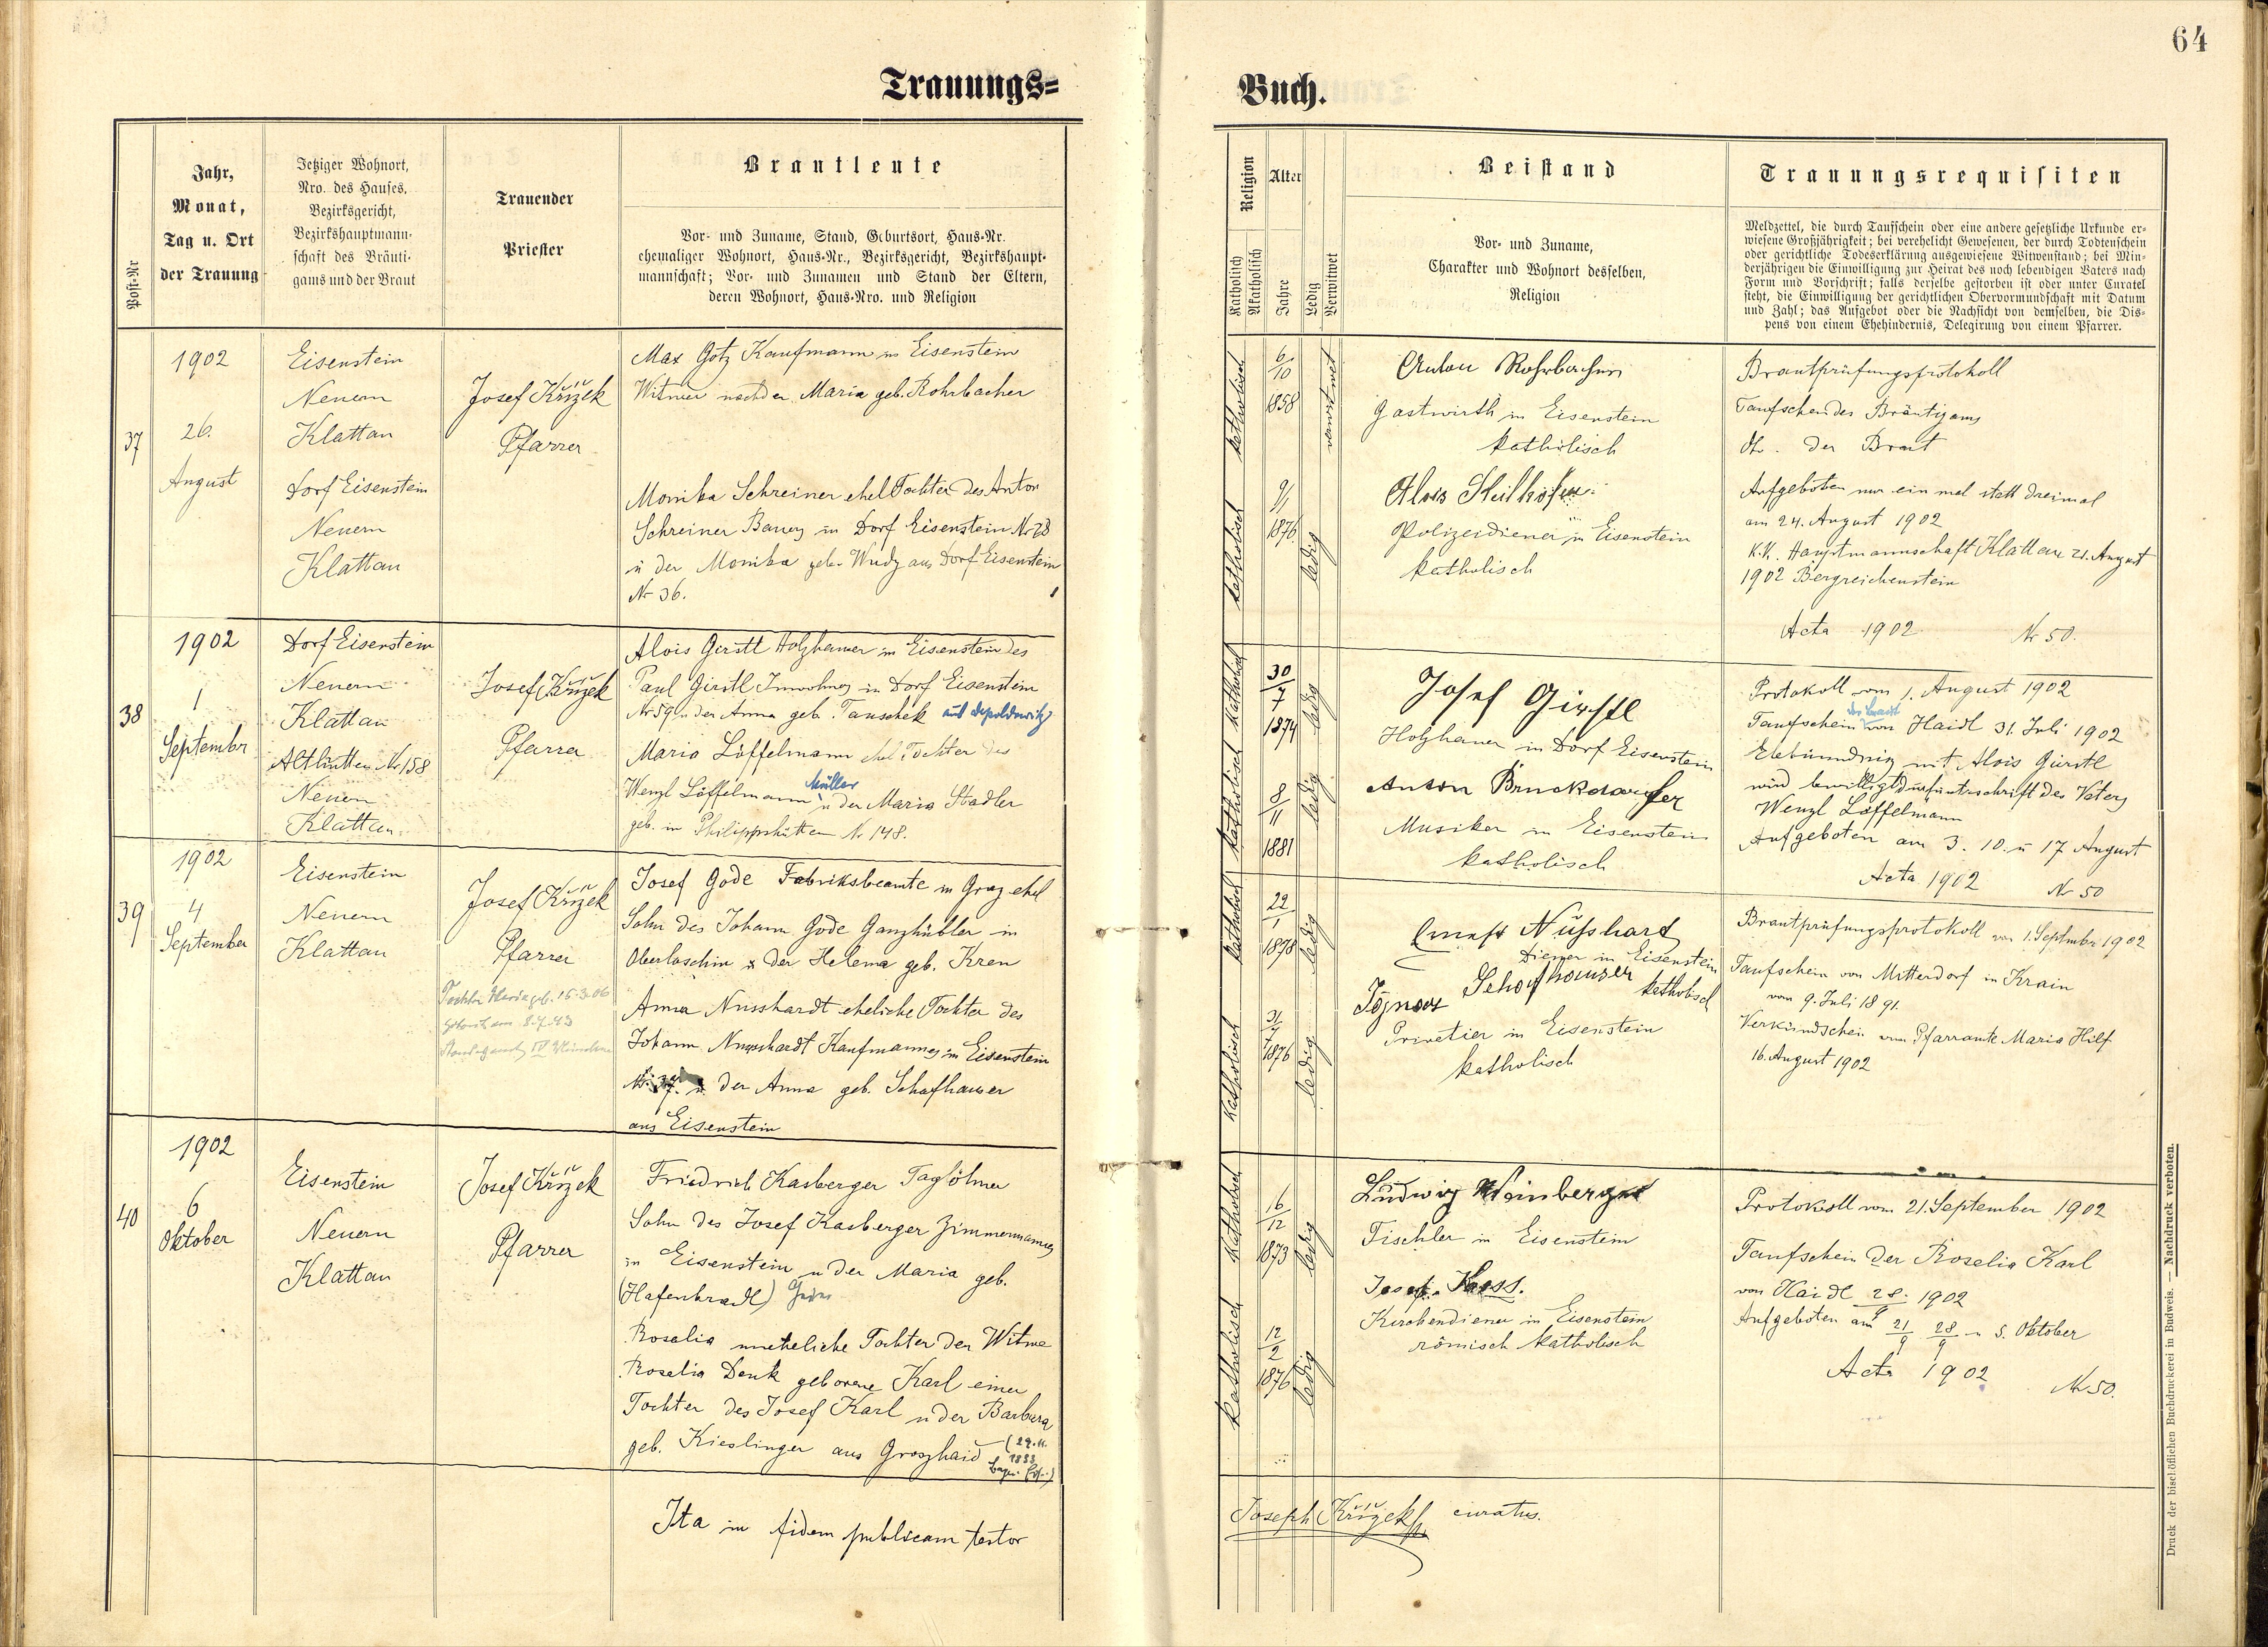 64
Trauungs=
Buch.
Post-Nr
Jahr,
Monat,
Tag u. Ort
der Trauung
Jetziger Wohnort,
Nro. des Hauses,
Bezirksgericht,
Bezirkshauptmann-
schaft des Bräuti-
gams und der Braut
Trauender
Priester
Brautleute
Vor- und Zuname, Stand, Geburtsort, Haus-Nr.
ehemaliger Wohnort, Haus-Nr., Bezirksgericht, Bezirkshaupt-
mannschaft; Vor- und Zunamen und Stand der Eltern,
deren Wohnort, Haus-Nro. und Religion
Religion
Katholisch
Akatholisch
Alter
Jahre
Ledig
Verwitwet
Beistand
Vor- und Zuname,
Charakter und Wohnort desselben,
Religion
Trauungsrequisiten
Meldzettel, die durch Taufschein oder eine andere gesetzliche Urkunde er-
wiesene Großjährigkeit; bei verehelicht Gewesenen, der durch Todtenschein
oder gerichtliche Todeserklärung ausgewiesene Witwenstand; bei Min-
derjährigen die Einwilligung zur Heirat des noch lebendigen Vaters nach
Form und Vorschrift; falls derselbe gestorben ist oder unter Curatel
steht, die Einwilligung der gerichtlichen Obervormundschaft mit Datum
und Zahl; das Aufgebot oder die Nachsicht von demselben, die Dis-
pens von einem Ehehindernis, Delegirung von einem Pfarrer.
37
1902
26.
August
Eisenstein
Neuern
Klattau
Dorf Eisenstein
Neuern
Klattau
Josef Křížek
Pfarrer
Max Götz Kaufmann in Eisenstein
Witwer nach der Maria geb. Rohrbacher
Monika Schreiner ehel Tochter des Anton
Schreiner Bauers in Dorf Eisenstein Nr 28
u der Monika geb. Wudy aus Dorf Eisenstein
Nr 36.
katholisch
6/10
1858
verwitwet
katholisch
9/1
1876
ledig
Anton Rohrbacher
Gastwirth in Eisenstein
katholisch
Alois
Polizeidiener in Eisenstein
katholisch
Brautprüfungsprotokoll
Taufschein des Bräutigams
dt. der Braut
Aufgeboten nur ein mal statt dreimal
am 24. August 1902
K.K. Hauptmannschaft Klattau 21. August
1902 Bergreichenstein
Acta 1902 Nr 50.
38
1902
1
September
Dorf Eisenstein
Neuern
Klattau
Althütten Nr 158
Neuern
Klattau
Josef Křížek
Pfarrer
Alois Girstl Holzhauer in Eisenstein des
Paul Girstl Inwohners in Dorf Eisenstein
Nr 59 u der Anna geb. Tauschek aus Depoldowitz
Maria Löffelmann ehel Tochter des
Müller
Wenzl Löffelmann u der Maria Stadler
geb. in Philippshütten Nr 148.
katholisch
30/7
1874
ledig
katholisch
8/11
1881
ledig
Josef Girstl
Holzhauer in Dorf Eisenstein
Anton Bruckdorfer
Musiker in Eisenstein
katholisch
Protokoll vom 1. August 1902
der Braut
Taufschein von Haidl 31. Juli 1902
mit Alois Girstl
wird bewilligt Unterschrift des Vaters
Wenzl Löffelmann
Aufgeboten am 3. 10. u 17 August
Acta 1902 Nr 50
39
1902
4
September
Eisenstein
Neuern
Klattau
Josef Křížek
Pfarrer
Tochter Maria geb. 15.3.06
Josef Gode Fabriksbeamte in Graz ehel
Sohn des Johann Gode Ganzhübler in
Oberloschin u der Helena geb. Kren
Anna Nusshardt eheliche Tochter des
Johann Nusshardt Kaufmannes in Eisenstein
Nr 37. u. der Anna geb. Schafhauser
aus Eisenstein
katholisch
22/1
1878
ledig
katholisch
31/7
1876
ledig
Ernest Nußhard
Diener in Eisenstein
katholisch
Ignaz Schafhauser
Privatier in Eisenstein
katholisch
Brautprüfungsprotokoll vom 1. September 1902
Taufschein von Mitterdorf in Krain
vom 9. Juli 1891.
Verkündschein vom Pfarramte Maria Hilf
16. August 1902
40
1902
6
Oktober
Eisenstein
Neuern
Klattau
Josef Křížek
Pfarrer
Friedrich Kasberger Taglöhner
Sohn des Josef Kasberger Zimmermannes
in Eisenstein u der Maria geb.
(Hafenbradl)
Rosalia uneheliche Tochter der Witwe
Rosalia Denk geborene Karl einer
Tochter des Josef Karl u der Barbara
geb. Kieslinger aus Groszhaid
katholisch
16/12
1873
ledig
katholisch
12/2
1876
ledig
Ludwig Weinberger
Tischler in Eisenstein
Josef Kass.
Kirchendiener in Eisenstein
römisch katholisch
Protokoll vom 21. September 1902
Taufschein der Rosalia Karl
von Haidl 28. 1902
Aufgeboten am 21/9 28/9 u 5. Oktober
Acta 1902 Nr 50.
Ita in fidem publicam testor
Joseph Křížek curatus.
Druck der bischöflichen Buchdruckerei in Budweis. — Nachdruck verboten.